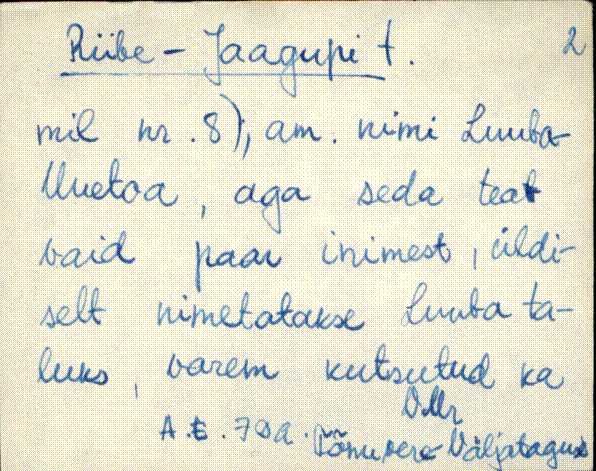 Riibe-Jaagupi t. 2
mil nr. 8), am. nimi Luuba-
Uuetoa, aga seda teat
vaid paar inimest, üldi-
selt nimetatakse Luuba ta-
luks, varem kutsutud ka
VMr
A.E. 70a. Tõnuvere-Väljataguse